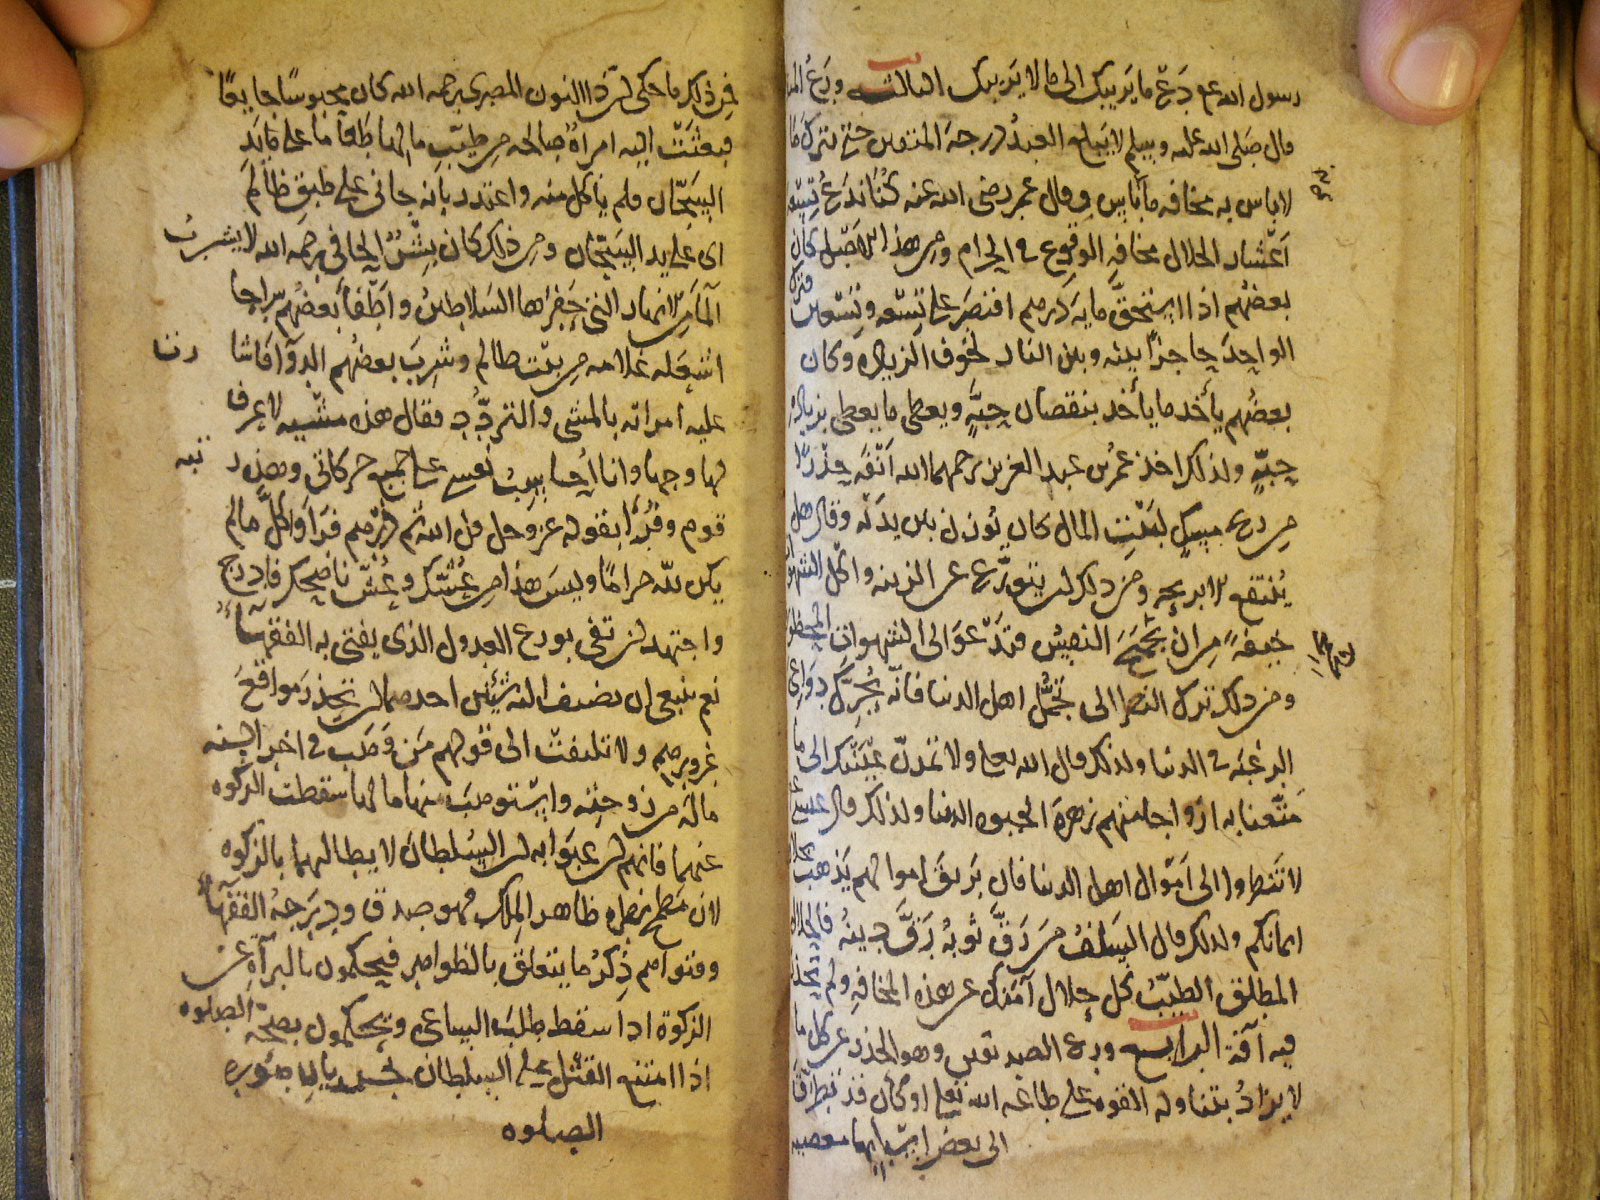 رسول الله ع م دع ما يريبك الى ما لا يريبك الثالث ورع
قال صلى الله عليه وسلم لا يبلغ العبد درجة المتقين حتى يترك ما
لا باس به مخافة ما به باس وقال عمر رضى الله عنه كنا ندع تسعة
اعشار الحلال مخافة الوقوع فى الحرام ومن هذا كان
بعضهم اذا استحق ماية درهم اقتصر على تسعة وتسعين
الواحد حاجزا بينه وبين النار لخوف الزيادة وكان
بعضهم يأخذ ما يأخذ بنقصان حبة ويعطى ما يعطى بزيادة
حبة ولذلك اخذ عمر بن عبد العزيز رحمهما الله انفه حذرا
من ريح مسك لبيت المال كان يوزن بين يديه وقال هل
ينتفع الا بريحه ومن ذلك ان يتورع عن الزينة واكل
خيفة من ان تجمح النفس فتدعو الى الشهوات المحظورة
ومن ذلك ترك النظر الى تجمل اهل الدنيا فانه يحرك دواعى
الرغبة فى الدنيا ولذلك قال الله تعالى ولا تمدن عينيك الى ما
متعنا به ازواجا منهم زهرة الحيوة الدنيا ولذلك قال عيسى
لا تنظروا الى اموال اهل الدنيا فان بريق اموالهم يذهب
ايمانكم ولذلك قال السلف من رق ثوبه رق دينه فالحلال
المطلق الطيب كل حلال انفك عن هذه المخافة ولم
فيه آفة الرابع ورع الصديقين وهو الحذر عن كل ما
لا يراد بتناوله القوة على طاعة الله تعالى او كان قد تطرق
الى بعض اسبابها معصية
فمن ذلك ما حكى ان ذا النون المصرى رحمه الله كان محبوسا جايعا
فبعثت اليه امراة صالحة من طيب مالها طعاما على يد
السجان فلم ياكل منه واعتذر بانه جانى على طبق ظالم
اى على يد السجان ومن ذلك كان بشر الحافى رحمه الله لا يشرب
الماء من الانهار التى حفرها السلاطين واطفأ بعضهم سراجا
اشعله غلامه من بيت ظالم وشرب بعضهم الدوآ فاشا رت
عليه امراته بالمشى والتردد فقال هذه مشية لا اعرف
لها وجها وانا احاسب نفسى على جميع حركاتى وهذه ر تبة
قوم وفوا بقوله عز وجل قل الله ثم ذرهم فراوا كل ما لم
يكن لله حراما وليس هذا من عشك وعش ناصحك فادرج
واجتهد ان تفى بورع العدول الذى يفتى به الفقهآء
نعم ينبغى ان تضيف اليه شيئين احدهما ان تحذر مواقع
غرورهم ولا تلتفت الى قولهم من وهب فى اخر السنة
ماله من زوجته واستوهب منها مالها سقطت الزكوة
عنهما فانهم ان عنوا به ان السلطان لا يطالبهما بالزكوة
لان مطمح نظره ظاهر الملك فهو صدق ودرجة الفقهآء
وفتواهم ذكر ما يتعلق بالظواهر فيحكمون بالبرآة عن
الزكوة اذا سقط طلب الساعى ويحكمون بصحة الصلوة
اذا امتنع القتل على السلطان بصورة
الصلوة